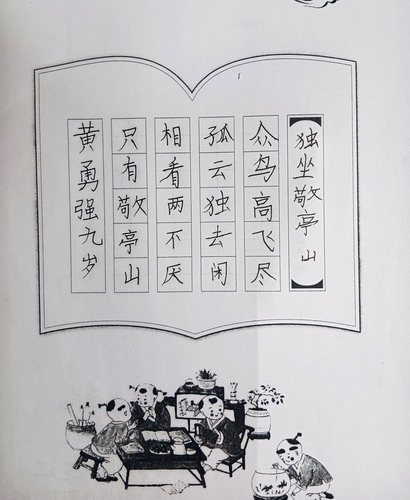 独坐敬亭山
众鸟高飞尽
孤云独去闲
相看两不厌
只有敬亭山
黄勇强九岁